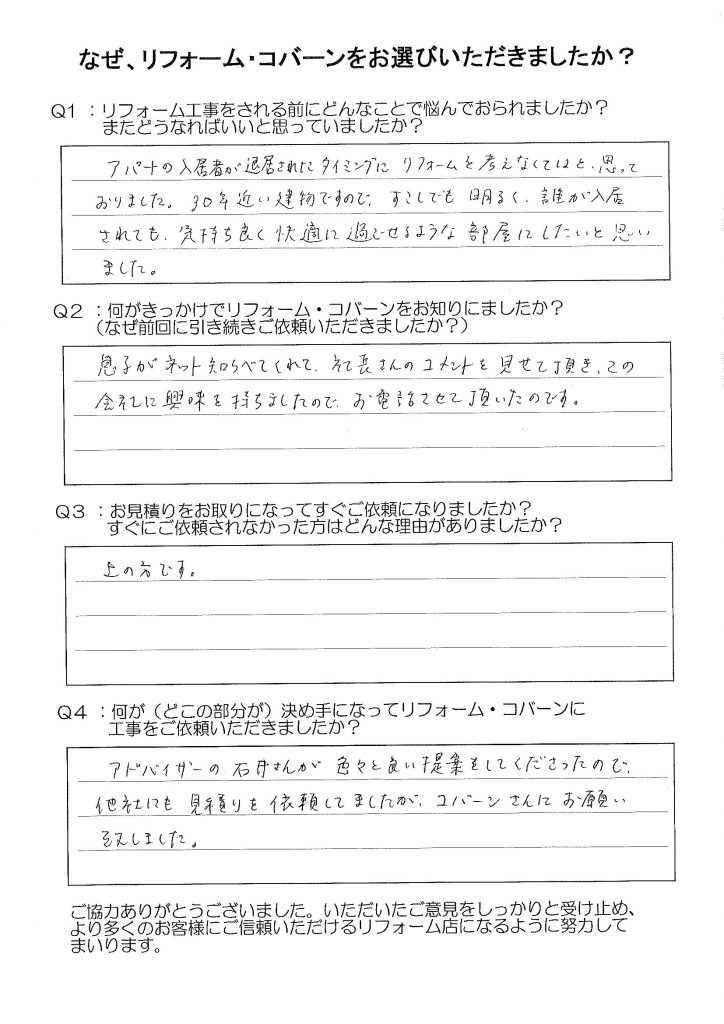 なぜ、リフォーム・コバーンをお選びいただきましたか？
Q1 ：リフォーム工事をされる前にどんなことで悩んでおられましたか？
またどうなればいいと思っていましたか？
アパートの入居者が退居されたタイミングに リフォームを考えなくてはと、思って
おりました。30年近い建物ですので、すこしでも 明るく、誰が入居
されても、気持ち良く 快適に 過ごせるような 部屋にしたいと 思い
ました。
Q2 ：何がきっかけでリフォーム・コバーンをお知りにましたか？
（なぜ前回に引き続きご依頼いただきましたか？）
息子が ネット知らべてくれて、社長さんのコメントを 見せて頂き、この
会社に興味を持ちましたので、お電話させて頂いたのです。
Q3 ：お見積りをお取りになってすぐご依頼になりましたか？
すぐにご依頼されなかった方はどんな理由がありましたか？
上の方です。
Q4 ：何が（どこの部分が）決め手になってリフォーム・コバーンに
工事をご依頼いただきましたか？
アドバイザーの 石丹さんが 色々と良い提案をしてくださったので、
他社にも 見積りを 依頼してましたが、コバーン さんに お願い
致しました。
ご協力ありがとうございました。いただいたご意見をしっかりと受け止め、
より多くのお客様にご信頼いただけるリフォーム店になるように努力して
まいります。